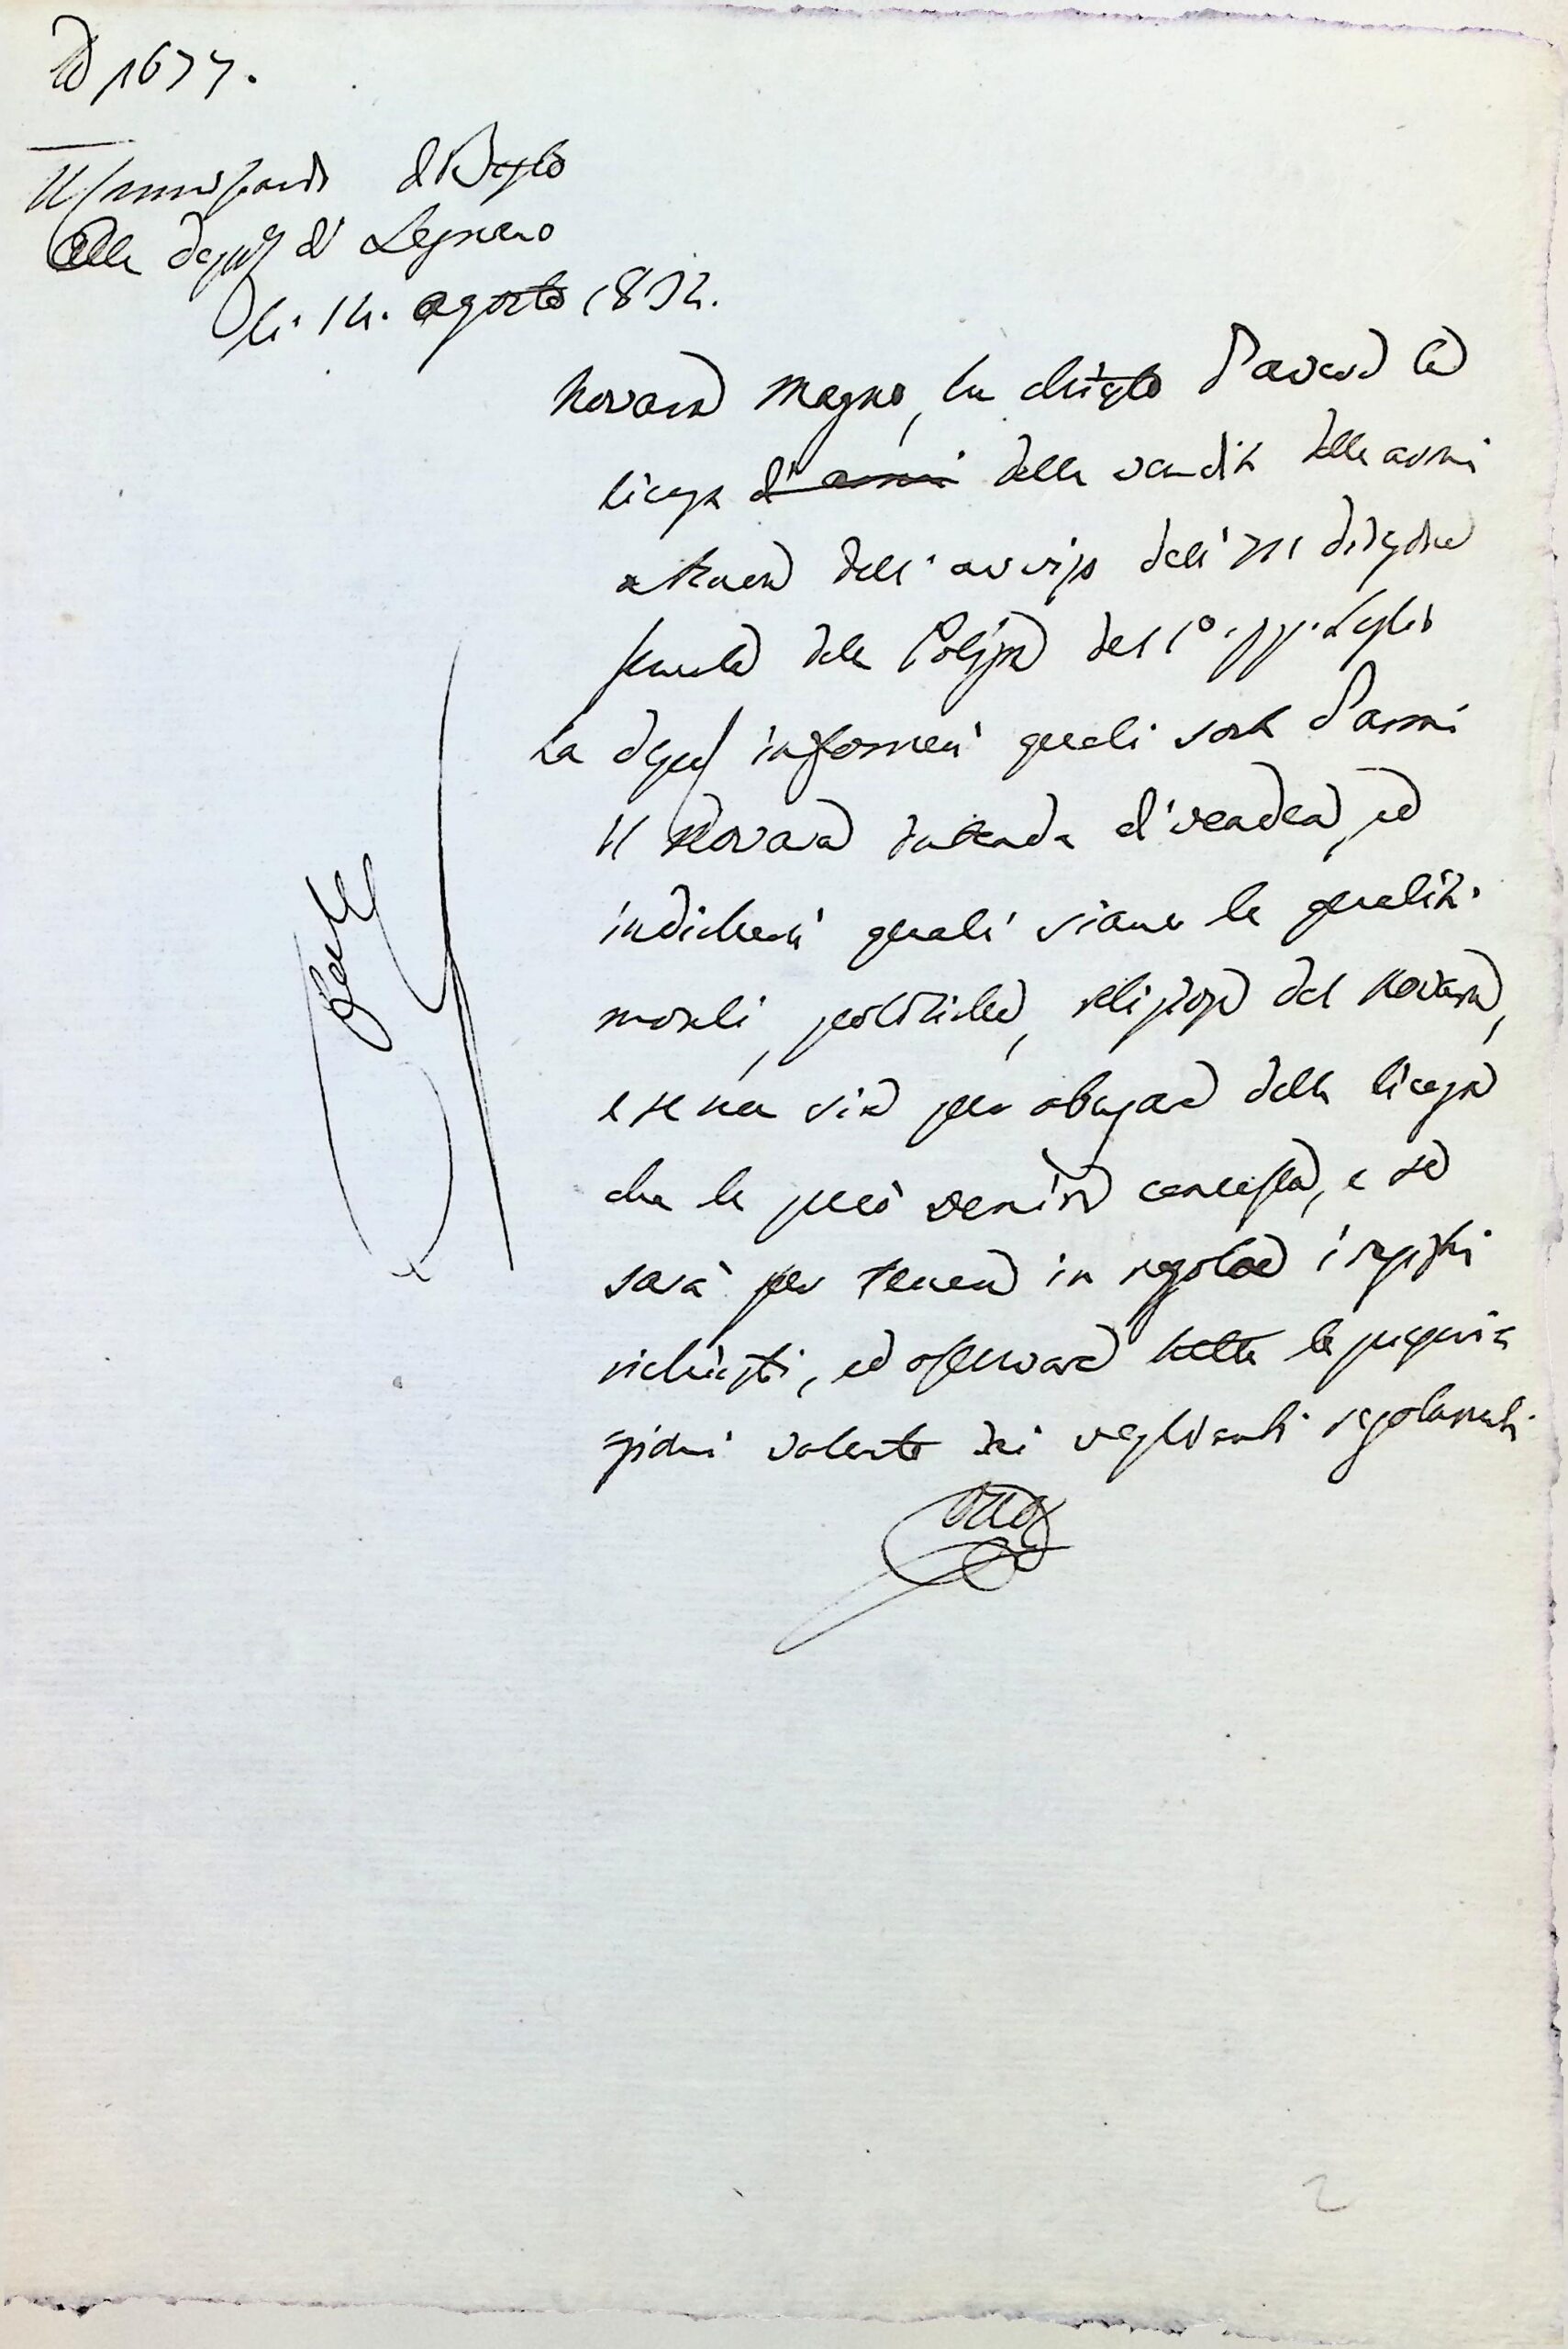 N 1677.
Il Commissario di Busto
Alla Deputaz di Legnano
li 14. agosto 1832.
Novara Magno, ha chiesto d'avere la
licenza d'armi della vendita delle armi
a tenore dell'avviso dell' direzione
generale della Polizia del 1° pp. Luglio
La deput informerà quali sorta d'armi
il Novara intenda di vendere, ed
indicherà quali siano le qualità
morali, politiche, religiose del Novara,
e se non sia per abusare della licenza
che le può venire concessa, e se
sarà per tenere in regola i registri
richiesti, ed osservare tutte le prescri
zioni volute dai veglianti regolamenti